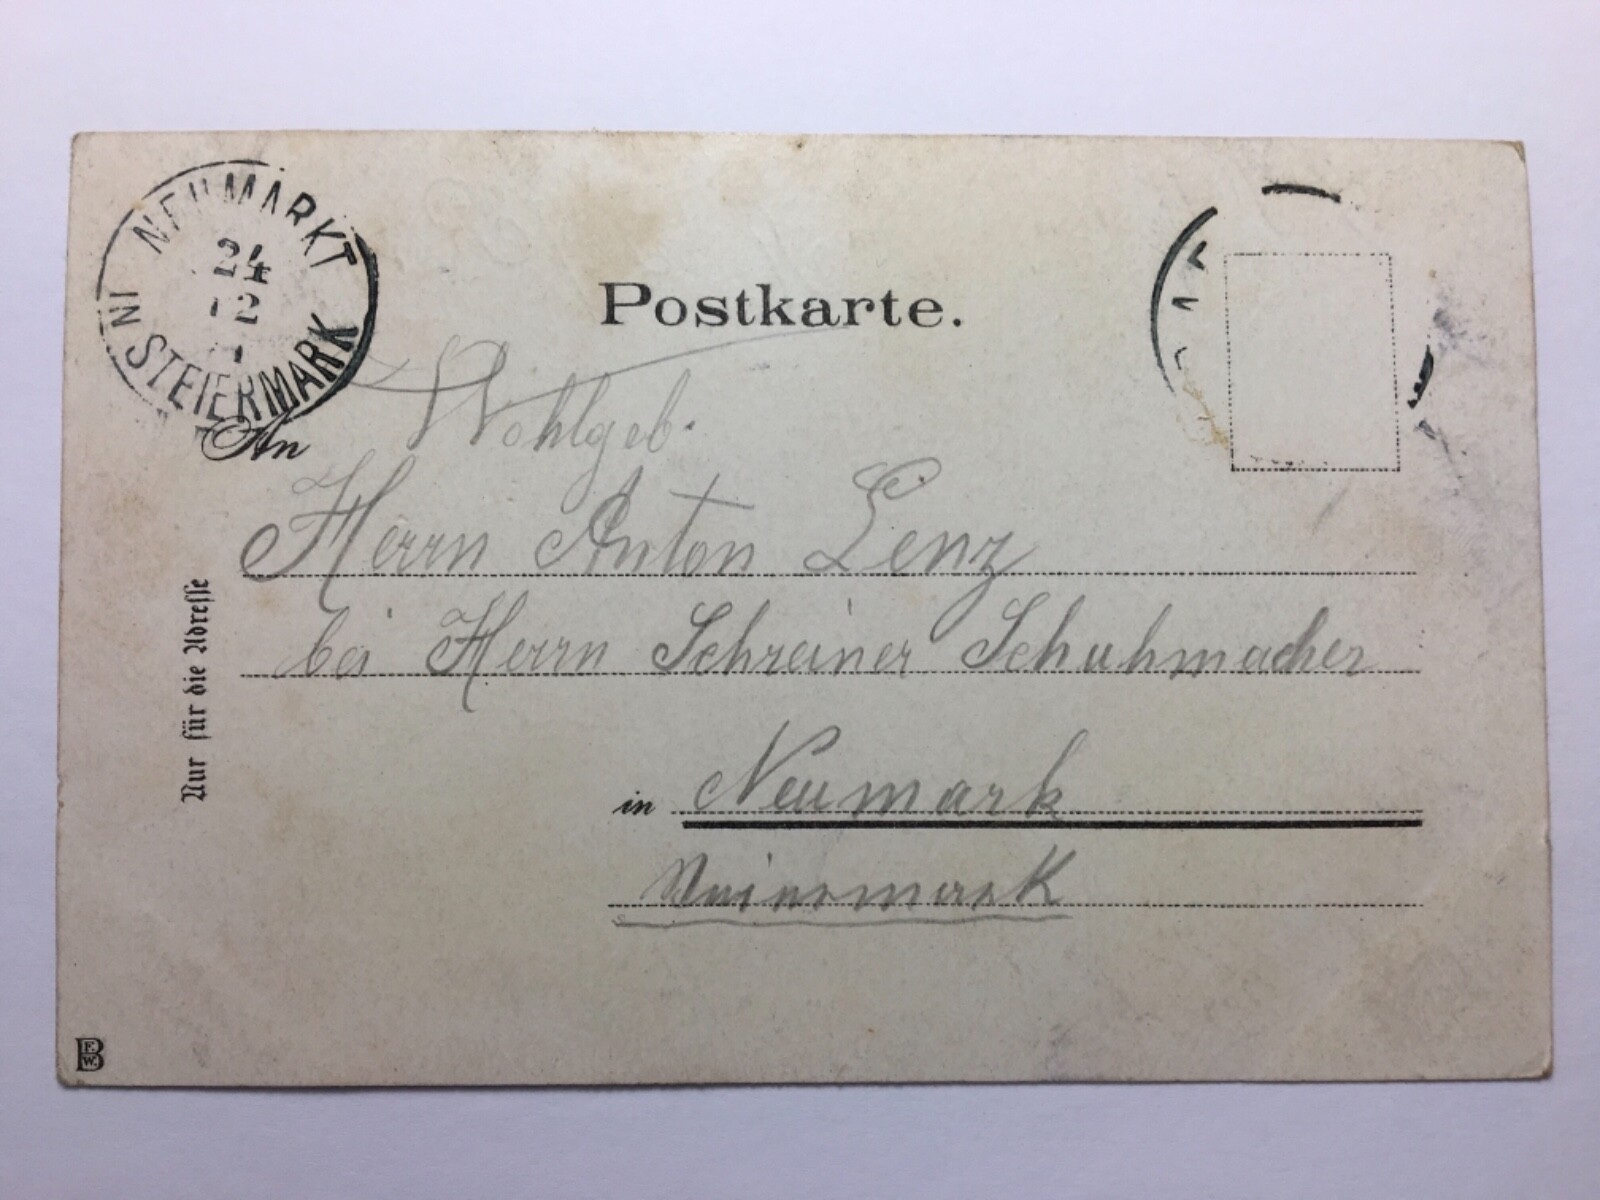 NEUMARKT
24
12
IN STEIERMARK
Postkarte.
An Wohlgeb.
Herrn Anton Lenz
bei Herrn Schreiner Schuhmacher
in Neumark
Steiermark
Nur für die Adresse
B F. W.